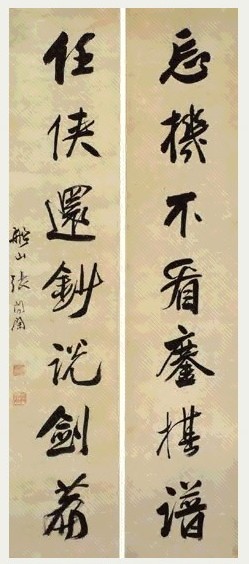 忘機不看鏖棋譜
任俠還鈔說劍篇
船山張問陶